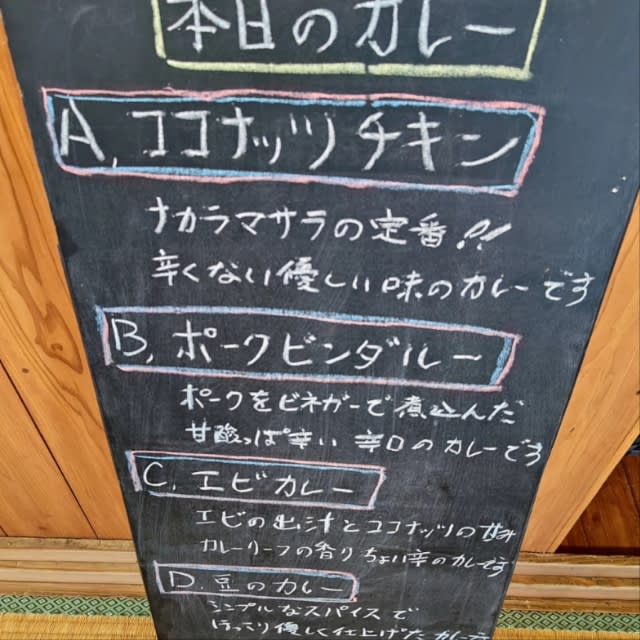 本日のカレー
A, ココナッツチキン
ナカラマサラの定番!!
辛くない優しい味のカレーです
B, ポークビンダルー
ポークをビネガーで煮込んだ
甘酸っぱ辛い 辛口のカレーです
C, エビカレー
エビの出汁とココナッツの甘み
カレーリーフの香り ちょい辛のカレーです
D. 豆のカレー
シンプルなスパイスで
ほっこり優しく仕上げたカレー